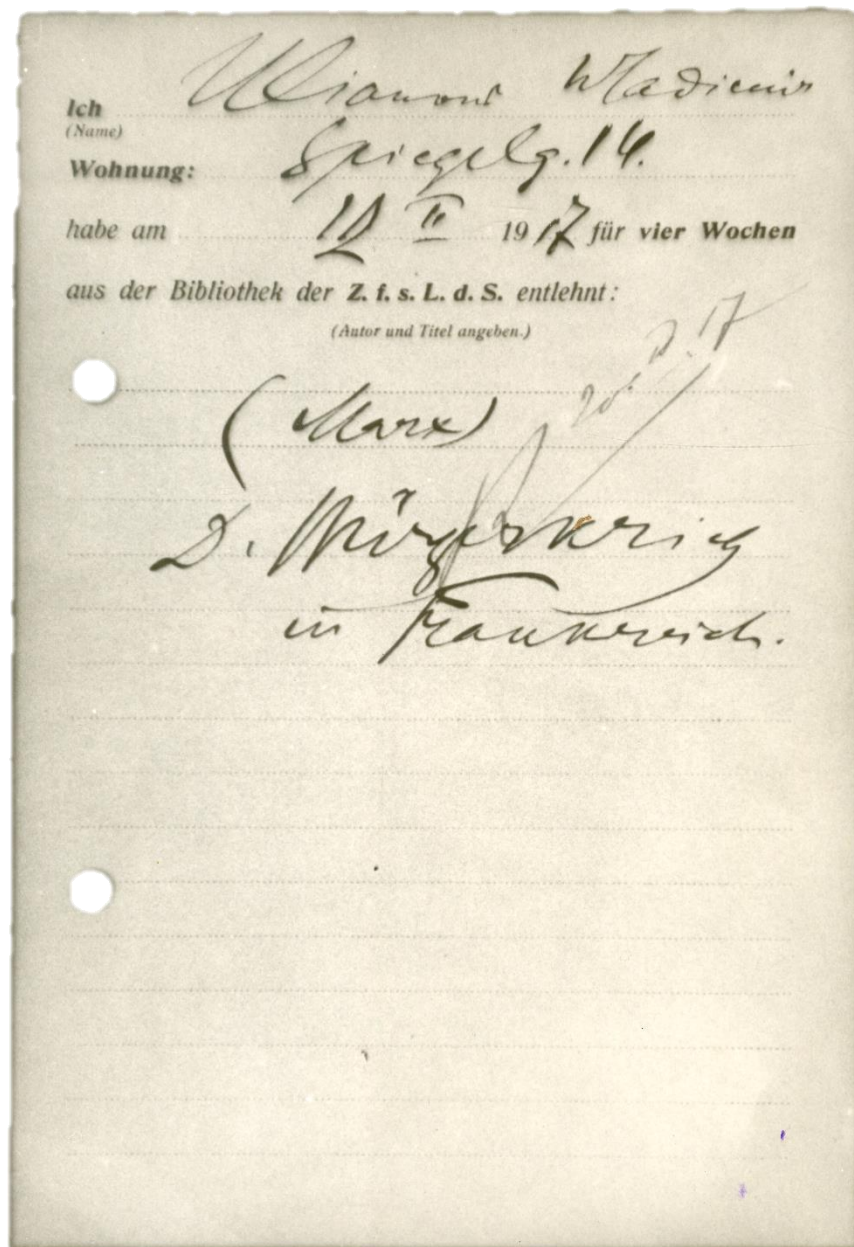 Ich Ulianow Wladimir
(Name)
Wohnung: Spiegelg. 14.
habe am 10 II 1917 für vier Wochen
aus der Bibliothek der Z. f. s. L. d. S. entlehnt:
(Autor und Titel angeben.)
(Marx)
D. Bürgerkrieg
in Frankreich.